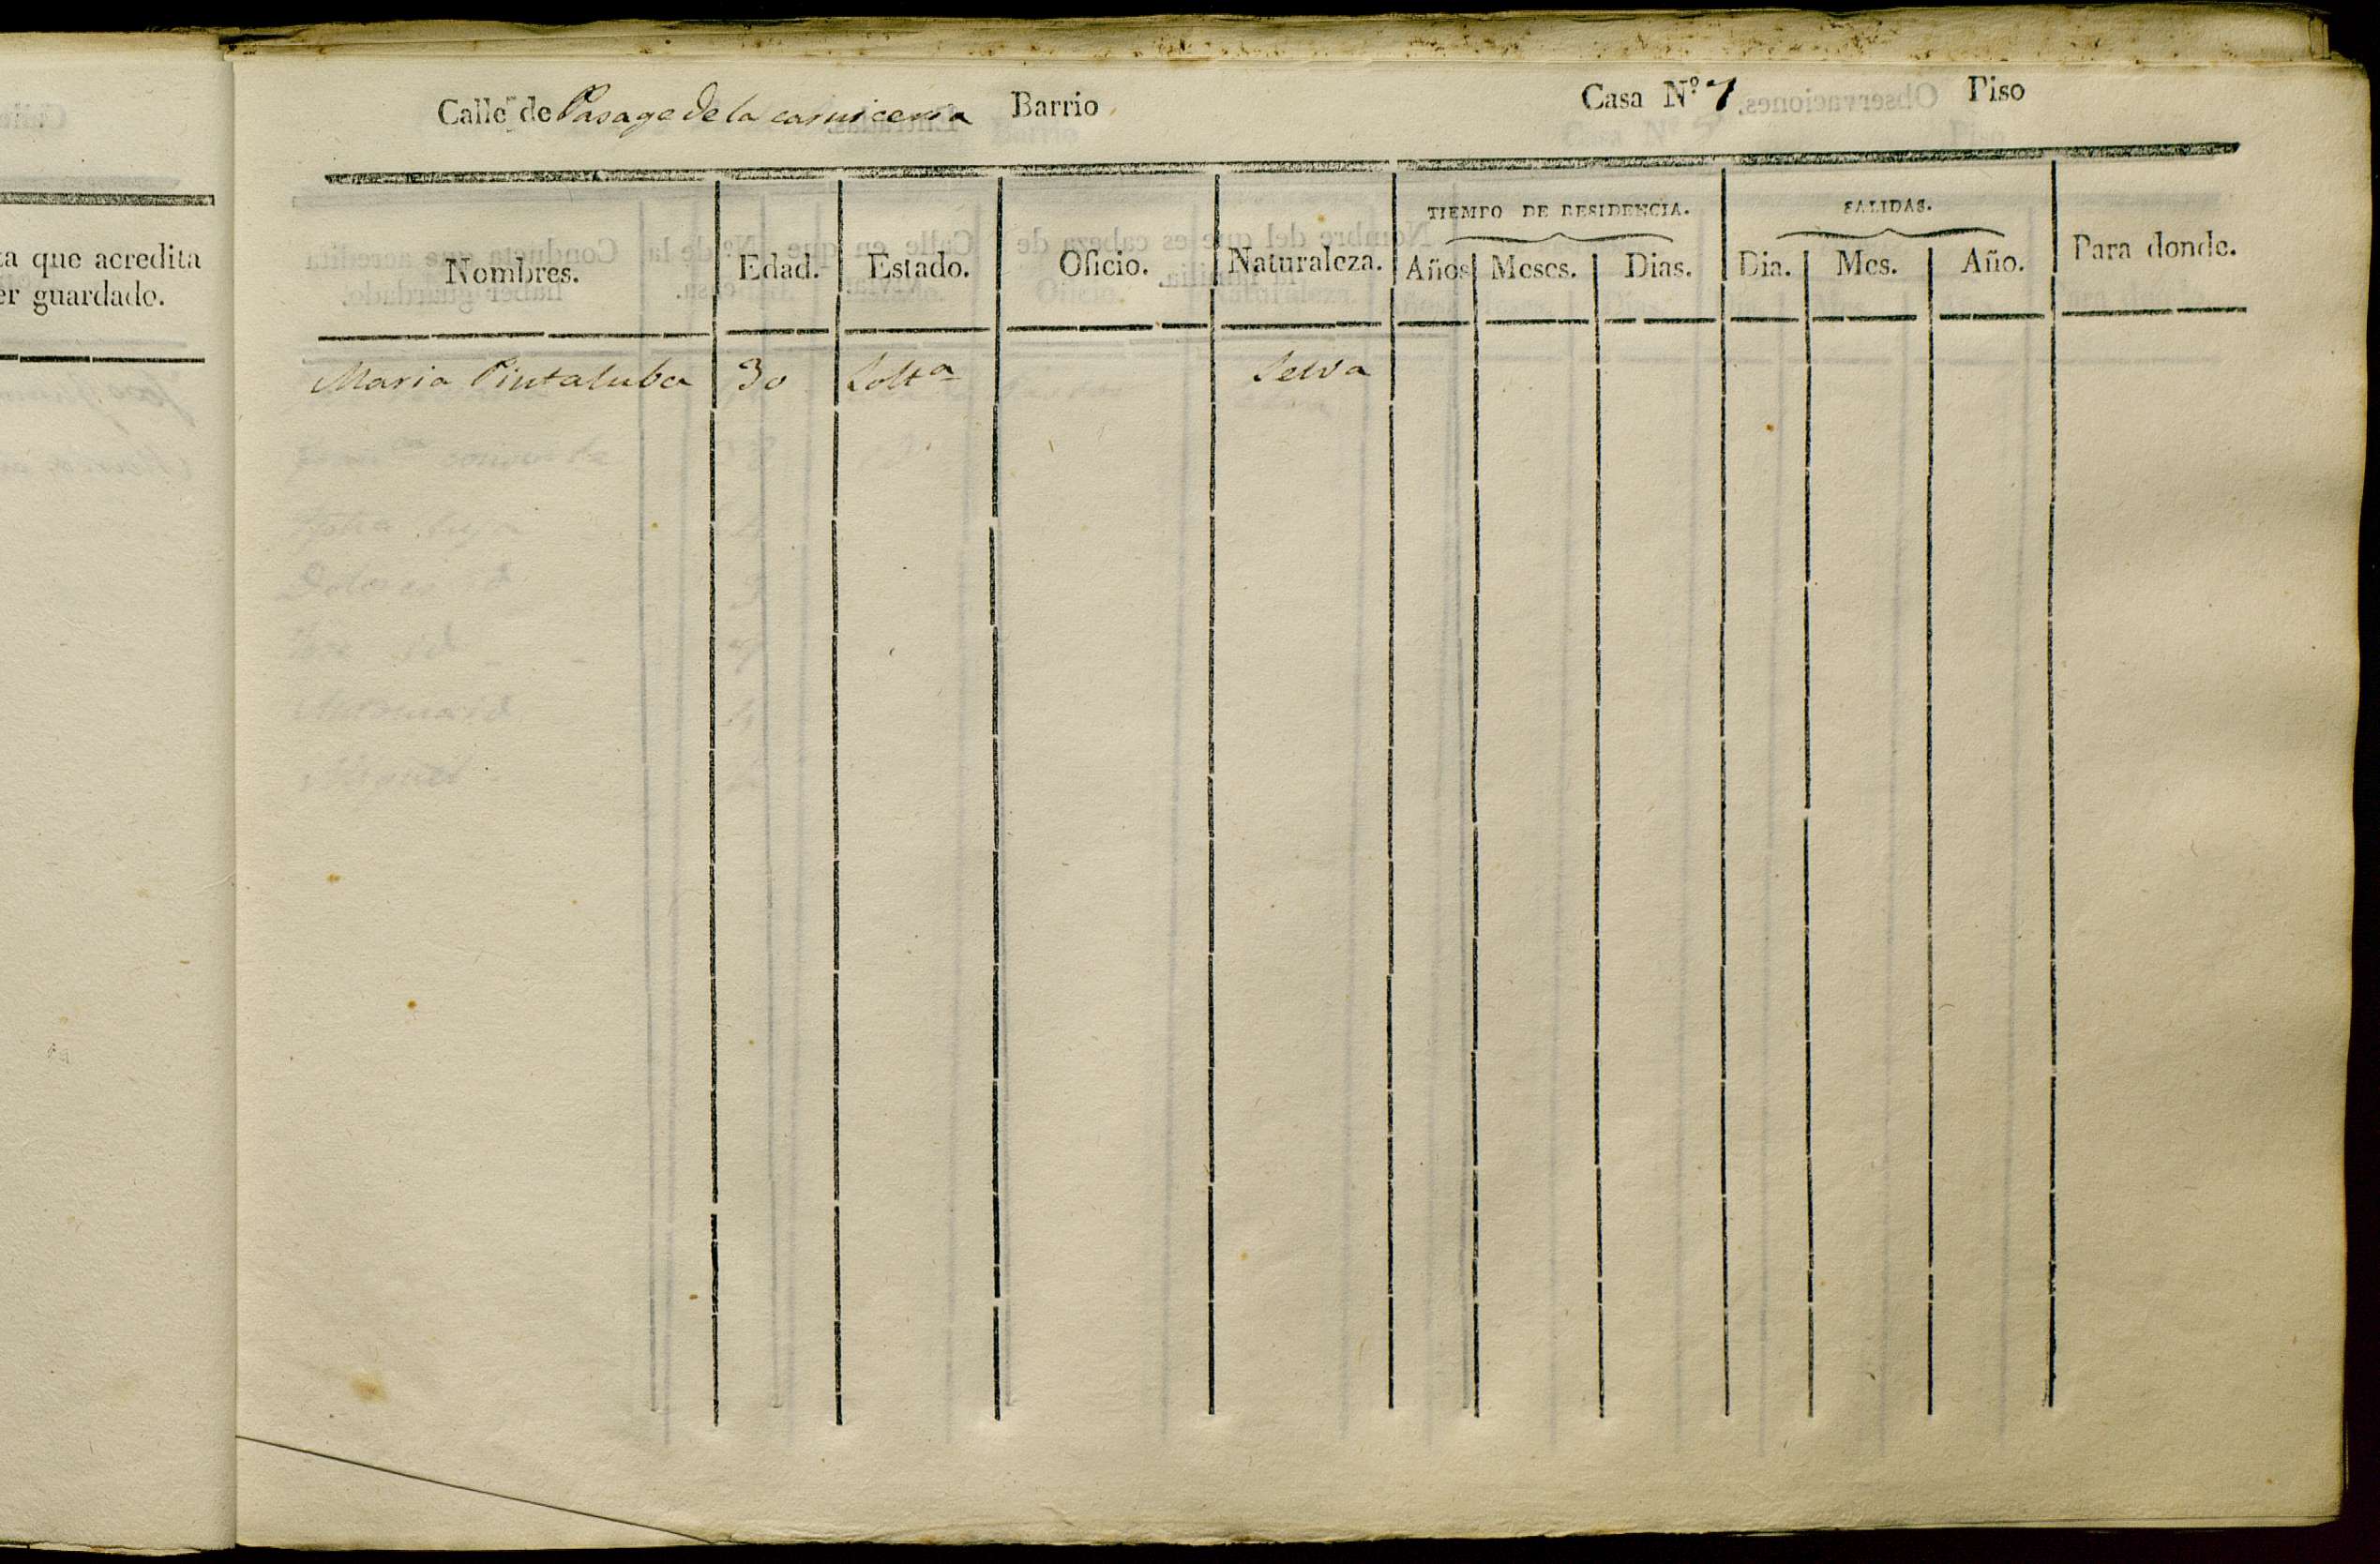 Calle de Pasage de la carniceria Barrio Casa Nº 7 Piso
TIEMPO DE RESIDENCIA. SALIDAS.
Nombres. Edad. Estado. Oficio. Naturaleza. Años Meses. Dias. Dia. Mes. Año. Para donde.
Maria Pintaluba 30 Solt.a Selva
ta que acredita
er guardado.